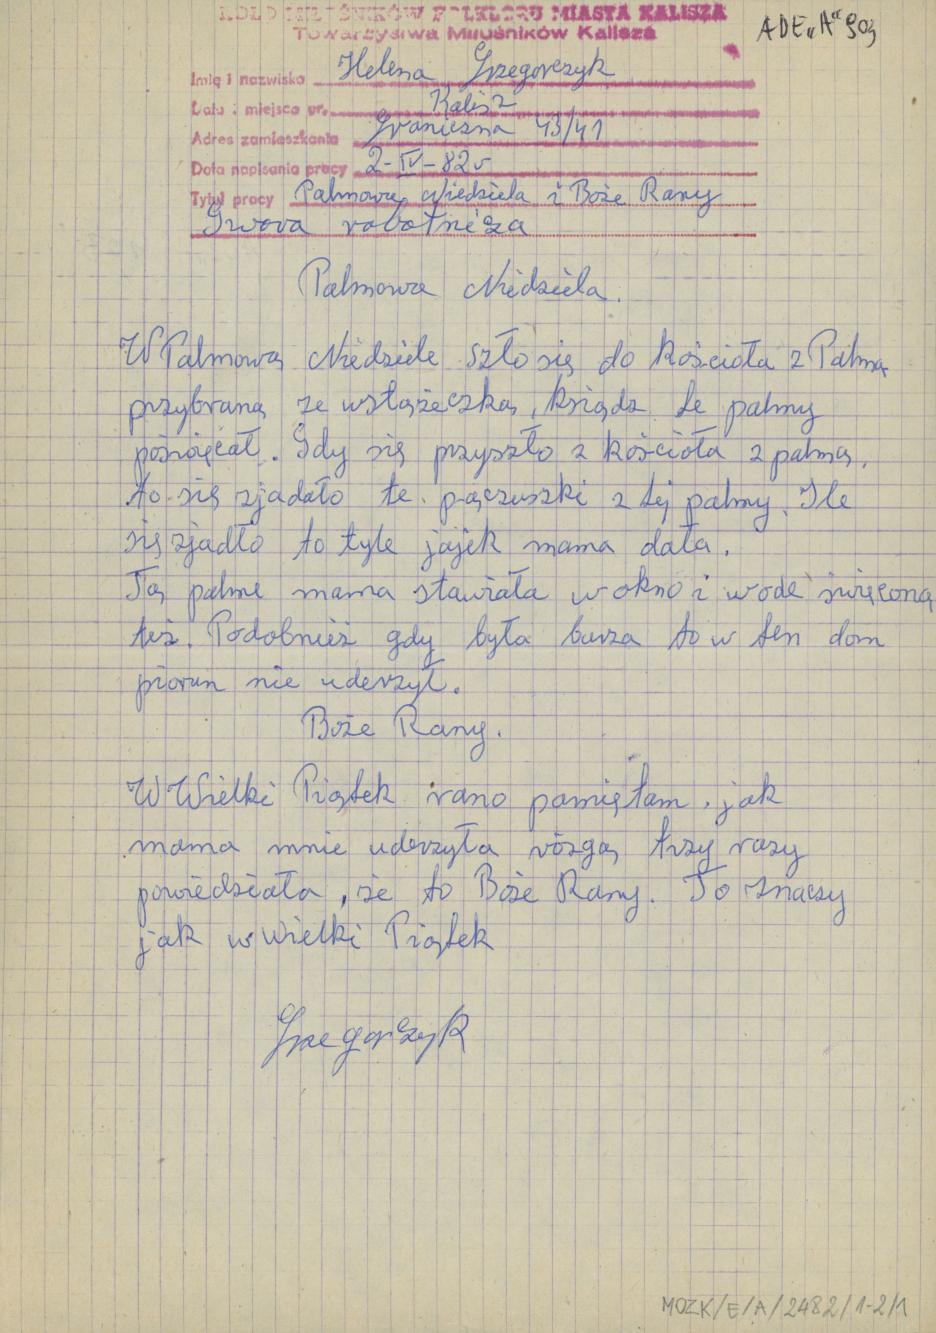 KOŁO MIŁOŚNIKÓW FOLKLORU MIASTA KALISZA
Towarzystwa Miłośników Kalisza
ADE „A" 903
Imię i nazwisko Helena Grzegorczyk
Data i miejsce ur. Kalisz
Adres zamieszkania Graniczna 43/41
Data napisania pracy 2-IV-82r
Tytuł pracy Palmowa Niedziela i Boże Rany
Gwora robotnicza
Palmowa Niedziela.
W Palmową Niedziele szło się do kościoła z Palmą
przybraną ze wstążeczką, ksiądz te palmy
poświęcał. Gdy się przyszło z kościoła z palmą,
to się zjadało te pączuszki z tej palmy. Ile
się zjadło to tyle jajek mama dała.
Tą palme mama stawiała w okno i wode święconą
też. Podobnież gdy była burza to w ten dom
piorun nie uderzył.
Boże Rany.
W Wielki Piątek rano pamiętam, jak
mama mnie uderzyła rózgą trzy razy
powiedziała, że to Boże Rany. To znaczy
jak w Wielki Piątek
Grzegorczyk
MOZK/E/A/2482/1-2/1